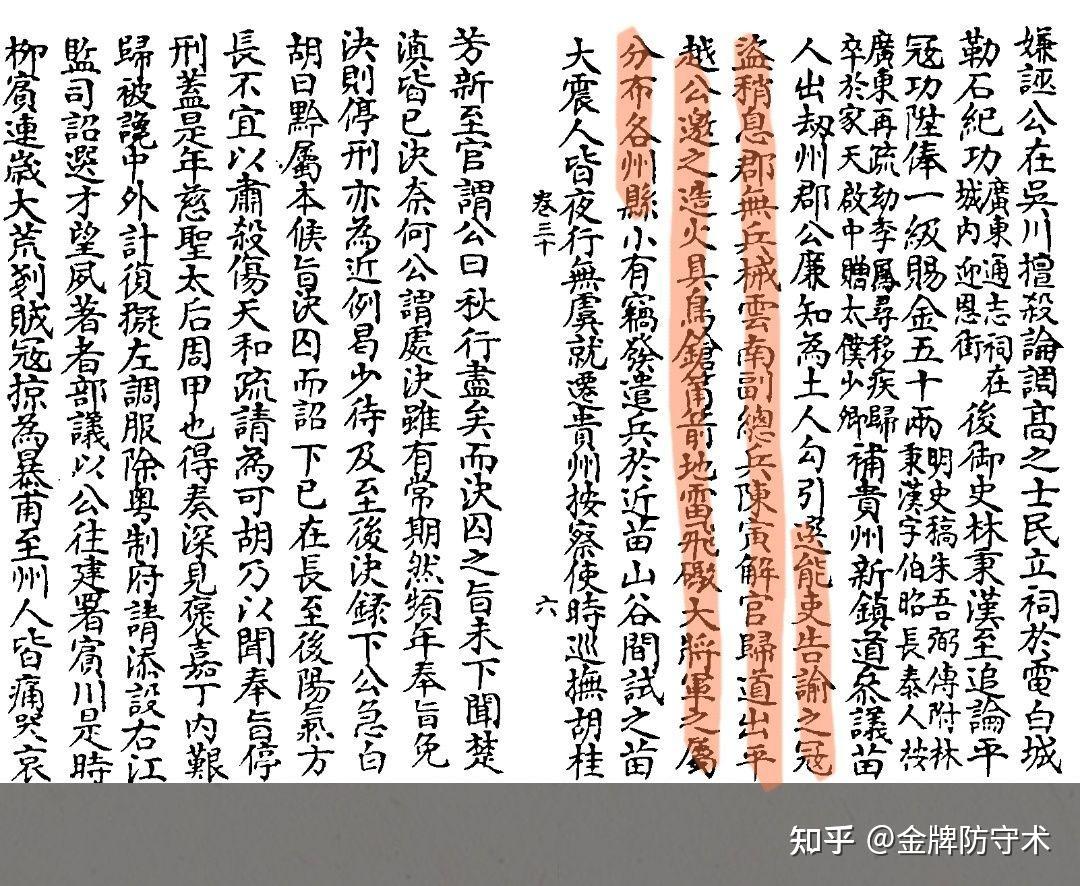 嫌誣公在吳川擅殺論調高之士民立祠於電白城
勒石紀功廣東通志祠在城內迎恩街後御史林秉漢至追論平
寇功陞俸一級賜金五十兩明史稿朱吾弼傳附林秉漢字伯昭長泰人按
廣東再疏劾李鳳尋移疾歸卒於家天啟中贈太僕少卿補貴州新鎮道參議苗
人出刼州郡公廉知為土人勾引選能吏告諭之寇
盜稍息郡無兵械雲南副總兵陳寅解官歸道出平
越公邀之造火具鳥銃筩箭地雷飛礮大將軍之屬
分布各州縣小有竊發遣兵於近苗山谷間試之苗
大震人皆夜行無虞就遷貴州按察使時巡撫胡桂
卷三十 六
芳新至官謂公曰秋行盡矣而決囚之旨未下聞楚
滇皆已決奈何公謂處決雖有常期然頻年奉旨免
決則停刑亦為近例曷少待及至後決錄下公急白
胡曰黔屬本候旨決囚而詔下已在長至後陽氣方
長不宜以肅殺傷天和疏請為可胡乃以聞奉旨停
刑蓋是年慈聖太后周甲也得奏深見褒嘉丁內艱
歸被讒中外計復擬左調服除粵制府請添設右江
監司詔選才望夙著者部議以公往建署賓川是時
柳賓連歲大荒剝賊寇掠為暴甫至州人皆痛哭哀
知乎 @金牌防守术